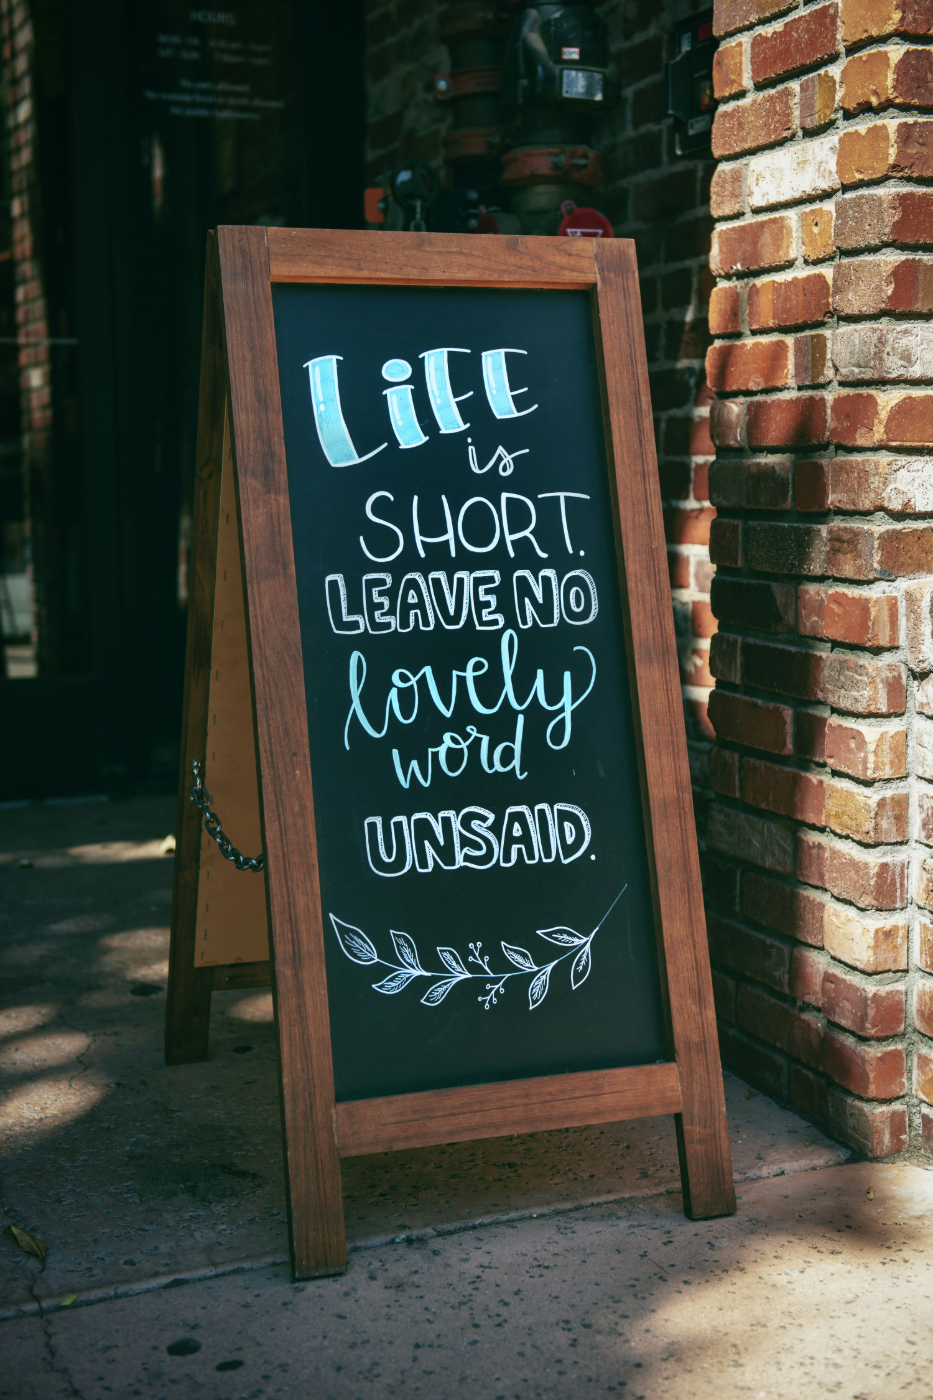 HOURS
LiFE
is
SHORT.
LEAVE NO
lovely
word
UNSAID.